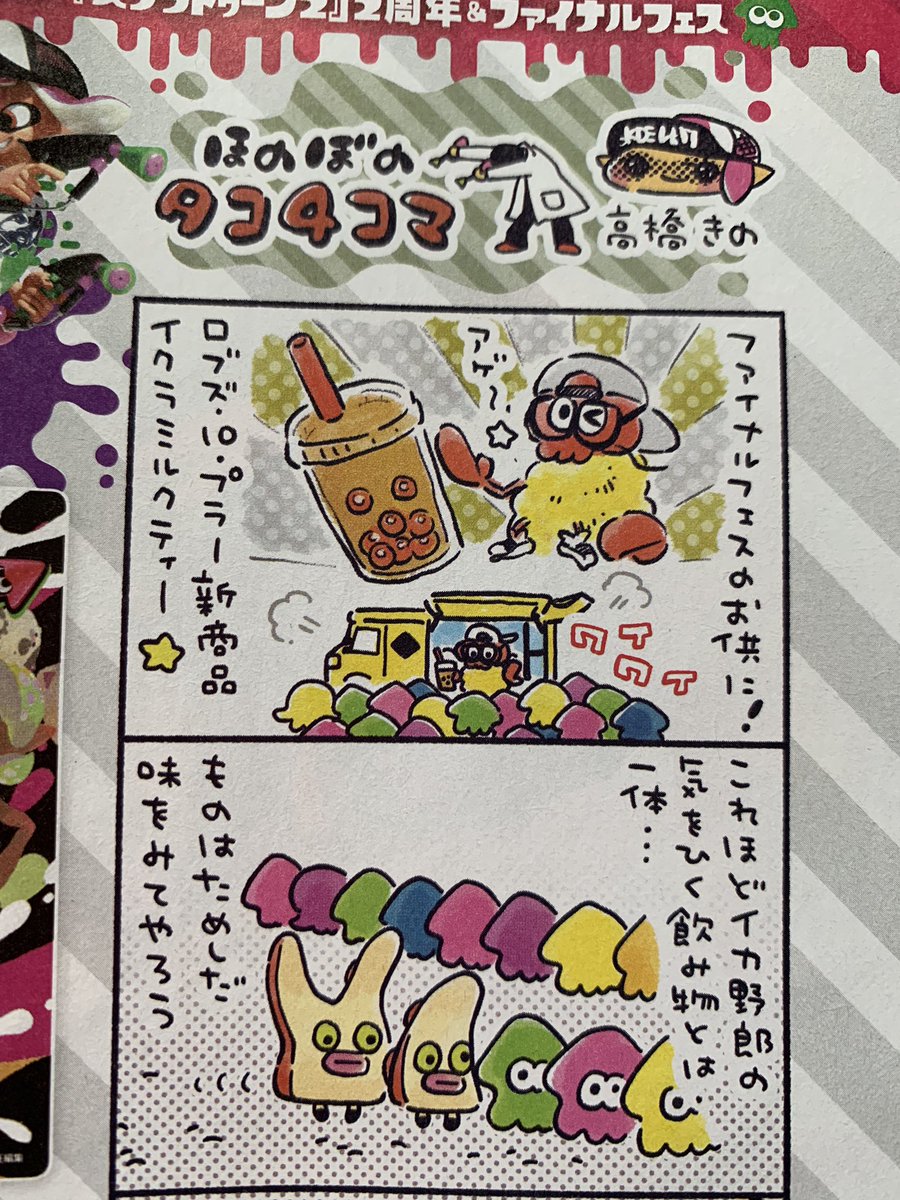 『スプラトゥーン2』2周年&ファイナルフェス
ほのぼの
タコ4コマ
高橋きの
ファイナルフェスのお供に!
アゲ〜
☆
ロブズ・10・プラー新商品
イクラミルクティー☆
ワイ
ワイ
これほどイカ野郎の
気をひく飲み物とは
一体…
ものはためしだ
味をみてやろう